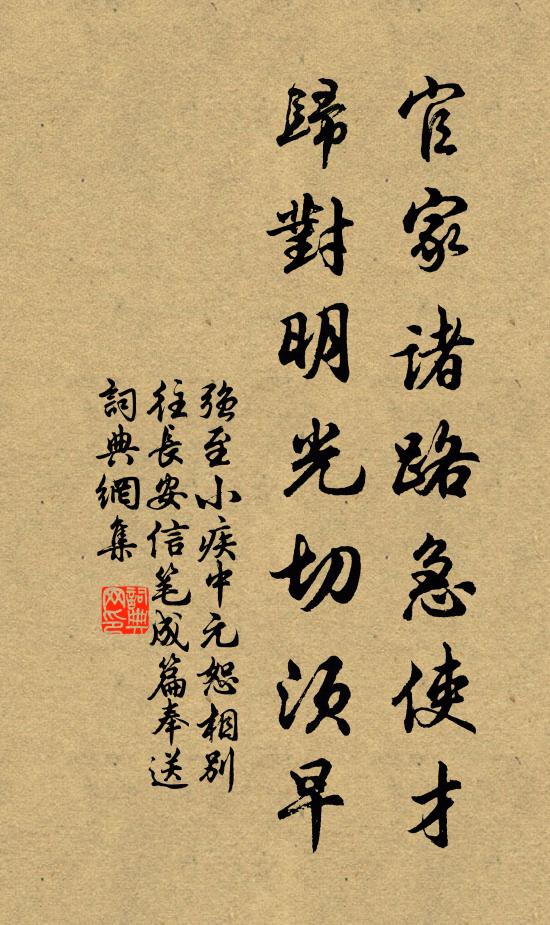 官家諸路急使才
歸對明光切須早
強至小疾中元恕相別
往長安信笔成篇奉送
詞典網集
詞典
网印